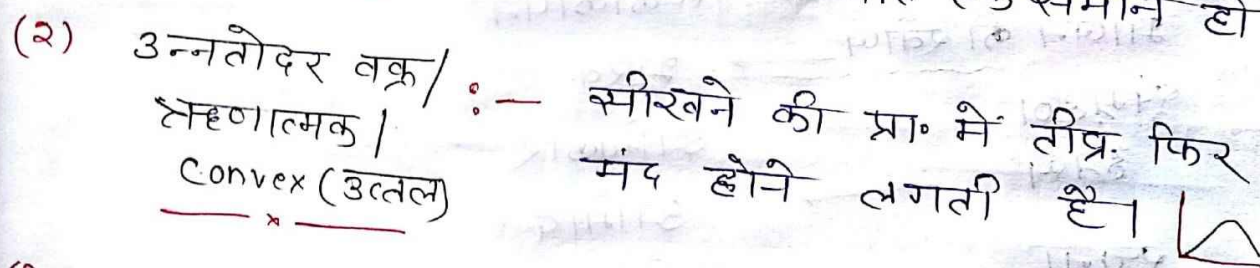 समान हो
(२) उन्नतोदर वक्र/
ऋणात्मक/
Convex (उत्तल)
:— सीखने की प्रा॰ में तीव्र फिर
मंद होने लगती है।